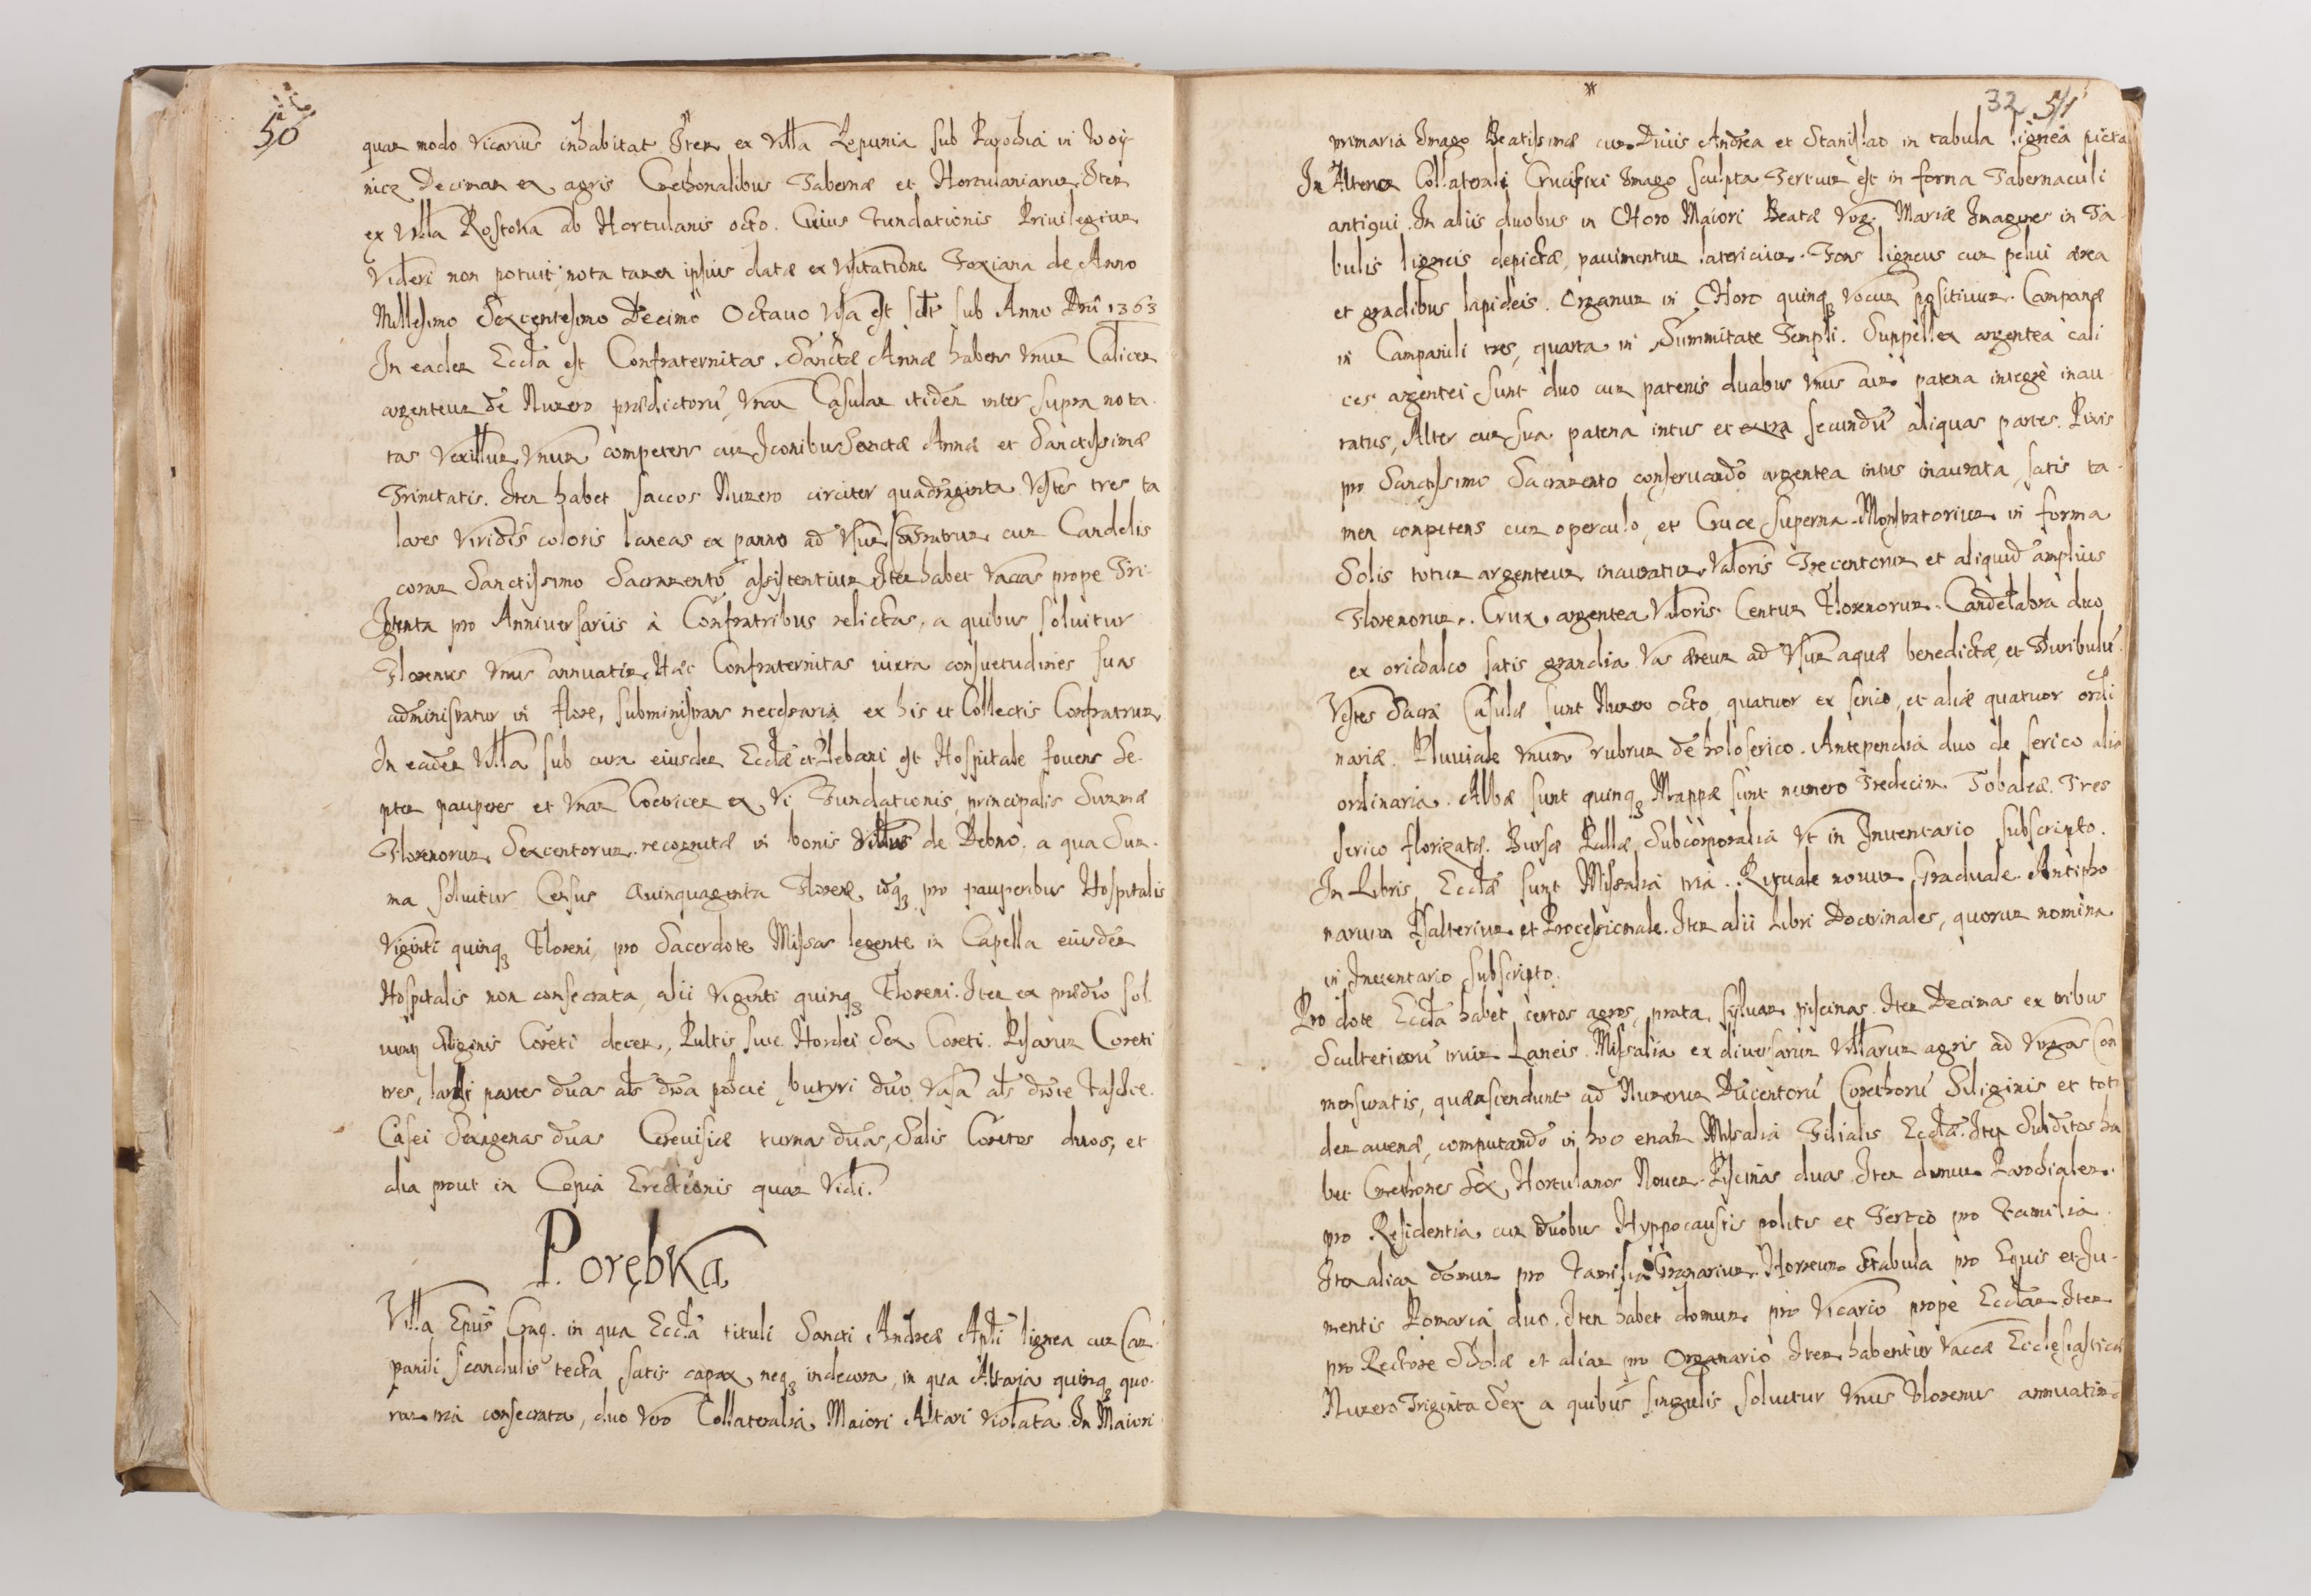 50
quam modo Vicarius inhabitat Item ex Villa Lopunia sub Parochia in Woy
nicz Decimam ex agris Cmethonalibus Tabernæ et Hortulaniarum Item
ex Villa Rostoka ab Hortulanis octo. Cuius Fundationis Priuilegium
Videri non potuit, nota tamen ipsius datæ ex Visitatione Foxiana de Anno
Millesimo Sexcentesimo Decimo Octauo Visa est scilt sub Anno Dni 1363
In eadem Eccla est Confraternitas Sanctæ Annæ habens Vnum Calicem
argenteum de Numero prædictorũ, Vnam Casulam itidem inter supra nota
tas Vexillum Vnum competens cum Iconibus Sanctæ Annæ et Sanctissimæ
Trinitatis. Item habet saccos Numero circiter quadraginta Vestes tres ta
lares Viridis coloris laneas ex panno ad Vsum Confratrum cum Candelis
coram Sanctissimo Sacramento assistentium Item habet Vaccas prope Tri-
ginta pro Anniuersariis à Confratribus relictas, a quibus soluitur
Florenus Vnus annuatim. Hæc Confraternitas iuxta consuetudines suas
administratur in flore, subministrans necessaria ex his et Collectis Confratrum
In eadem Villa sub cura eiusdem Ecclæ et Plebani est Hospitale fouens Se-
ptem pauperes et Vnam Coctricem ex Vi Fundationis principalis Summæ
Florenorum Sexcentorum recognitæ in bonis Villæ de Debno, a qua Sum-
ma soluitur Census Quinquaginta Florenæ, idq3 pro pauperibus Hospitalis
Viginti quinq3 Floreni, pro Sacerdote Missas legente in Capella eiusdem
Hospitalis non consecrata, alii Viginti quinq3 Floreni. Item ex prædio sol
uunt Siliginis Coreti decem, Pultis siue Hordei Sex Coreti. Pisarum Coreti
tres, lardi partes duas als dwa połcie, butyri duo Vasa als dwie fasce.
Casei Sexagenas duas Cereuisiæ turnas duas, Salis Coretos duos, et
alia prout in Copia Erectionis quam Vidi.
Porębka
Villa Epũs Crac. in qua Eccla tituli Sancti Andreæ Apli lignea cum Cam-
panili scandulis tecta satis capax neq3 indecora, in qua Altaria quinq3 quo-
rum tria consecrata, duo Vero Collateralia Maiori Altari Violata. In Maiori
32 51
primaria Imago Beatissimæ cum Diuis Andrea et Stanislao in tabula lignea picta
In Altero Collaterali Crucifixi Imago sculpta Tertium est in forma Tabernaculi
antiqui. In aliis duobus in Choro Maiori Beatæ Virg. Mariæ Imagines in Ta-
bulis ligneis depictæ, pauimentum latericium. Fons ligneus cum pelui ærea
et gradibus lapideis. Organum in Choro quinq3 vocum positiuum. Campanæ
in Campanili tres, quarta in Summitate Templi. Suppellex argentea cali
ces argentei Sunt duo cum patenis duabus Vnus cum patena integrè inau
ratus, Alter cum sua patena intus et extra secundũ aliquas partes. Pixis
pro Sanctissimo Sacramento conseruando argentea intus inaurata, satis ta-
men competens cum operculo, et Cruce superna. Monstratorium in forma
Solis totum argenteum inauratum Valoris Trecentorum et aliquid amplius
Florenorum. Crux argentea Valoris Centum Florenorum. Candelabra duo
ex orichalco satis grandia Vas æreum ad Vsum aquæ benedictæ, et Thuribulũ.
Vestes Sacræ Casulæ sunt Numero octo, quatuor ex serico, et aliæ quatuor ordi
nariæ. Pluuiale Vnum rubrum de holoserico. Antependia duo de serico alia
ordinaria. Albæ sunt quinq3 Mappæ sunt numero Tredecim Tobaleæ Tres
serico florizatæ. Bursæ Pallæ, Subcorporalia Vt in Inuentario subscripto.
In Libris Ecclæ sunt Missalia tria. Rituale nouum Graduale Antipho-
narium Psalterium et Processionale. Item alii Libri Doctrinales, quorum nomina
in Inuentario subscripto.
Pro dote Eccla habet certos agros, prata, syluam piscinas. Item Decimas ex tribus
Scultetiarũ trium Laneis. Missalia ex diuersarum Villarum agris ad Virgas Con
mensuratis, quæ ascendunt ad Numerum Ducentorũ Corethorũ Siliginis et toti
dem auenæ, computando in hoc etiam Missalia Filialis Ecclæ. Item Subditos ha
bet Cmethones Sex, Hortulanos Nouem. Piscinas duas. Item domum Parochialem
pro Residentia cum duobus Hyppocaustis politis et Tertio pro Familia.
Item aliam domum pro Familia Granarium. Horreum Stabula pro Equis et Iu-
mentis Pomaria duo. Item habet domum pro Vicario prope Ecclam Item
pro Rectore Scholæ et aliam pro Organario Item habentur Vaccæ Ecclesiasticæ
Numero Triginta Sex a quibus singulis soluitur Vnus Florenus annuatim